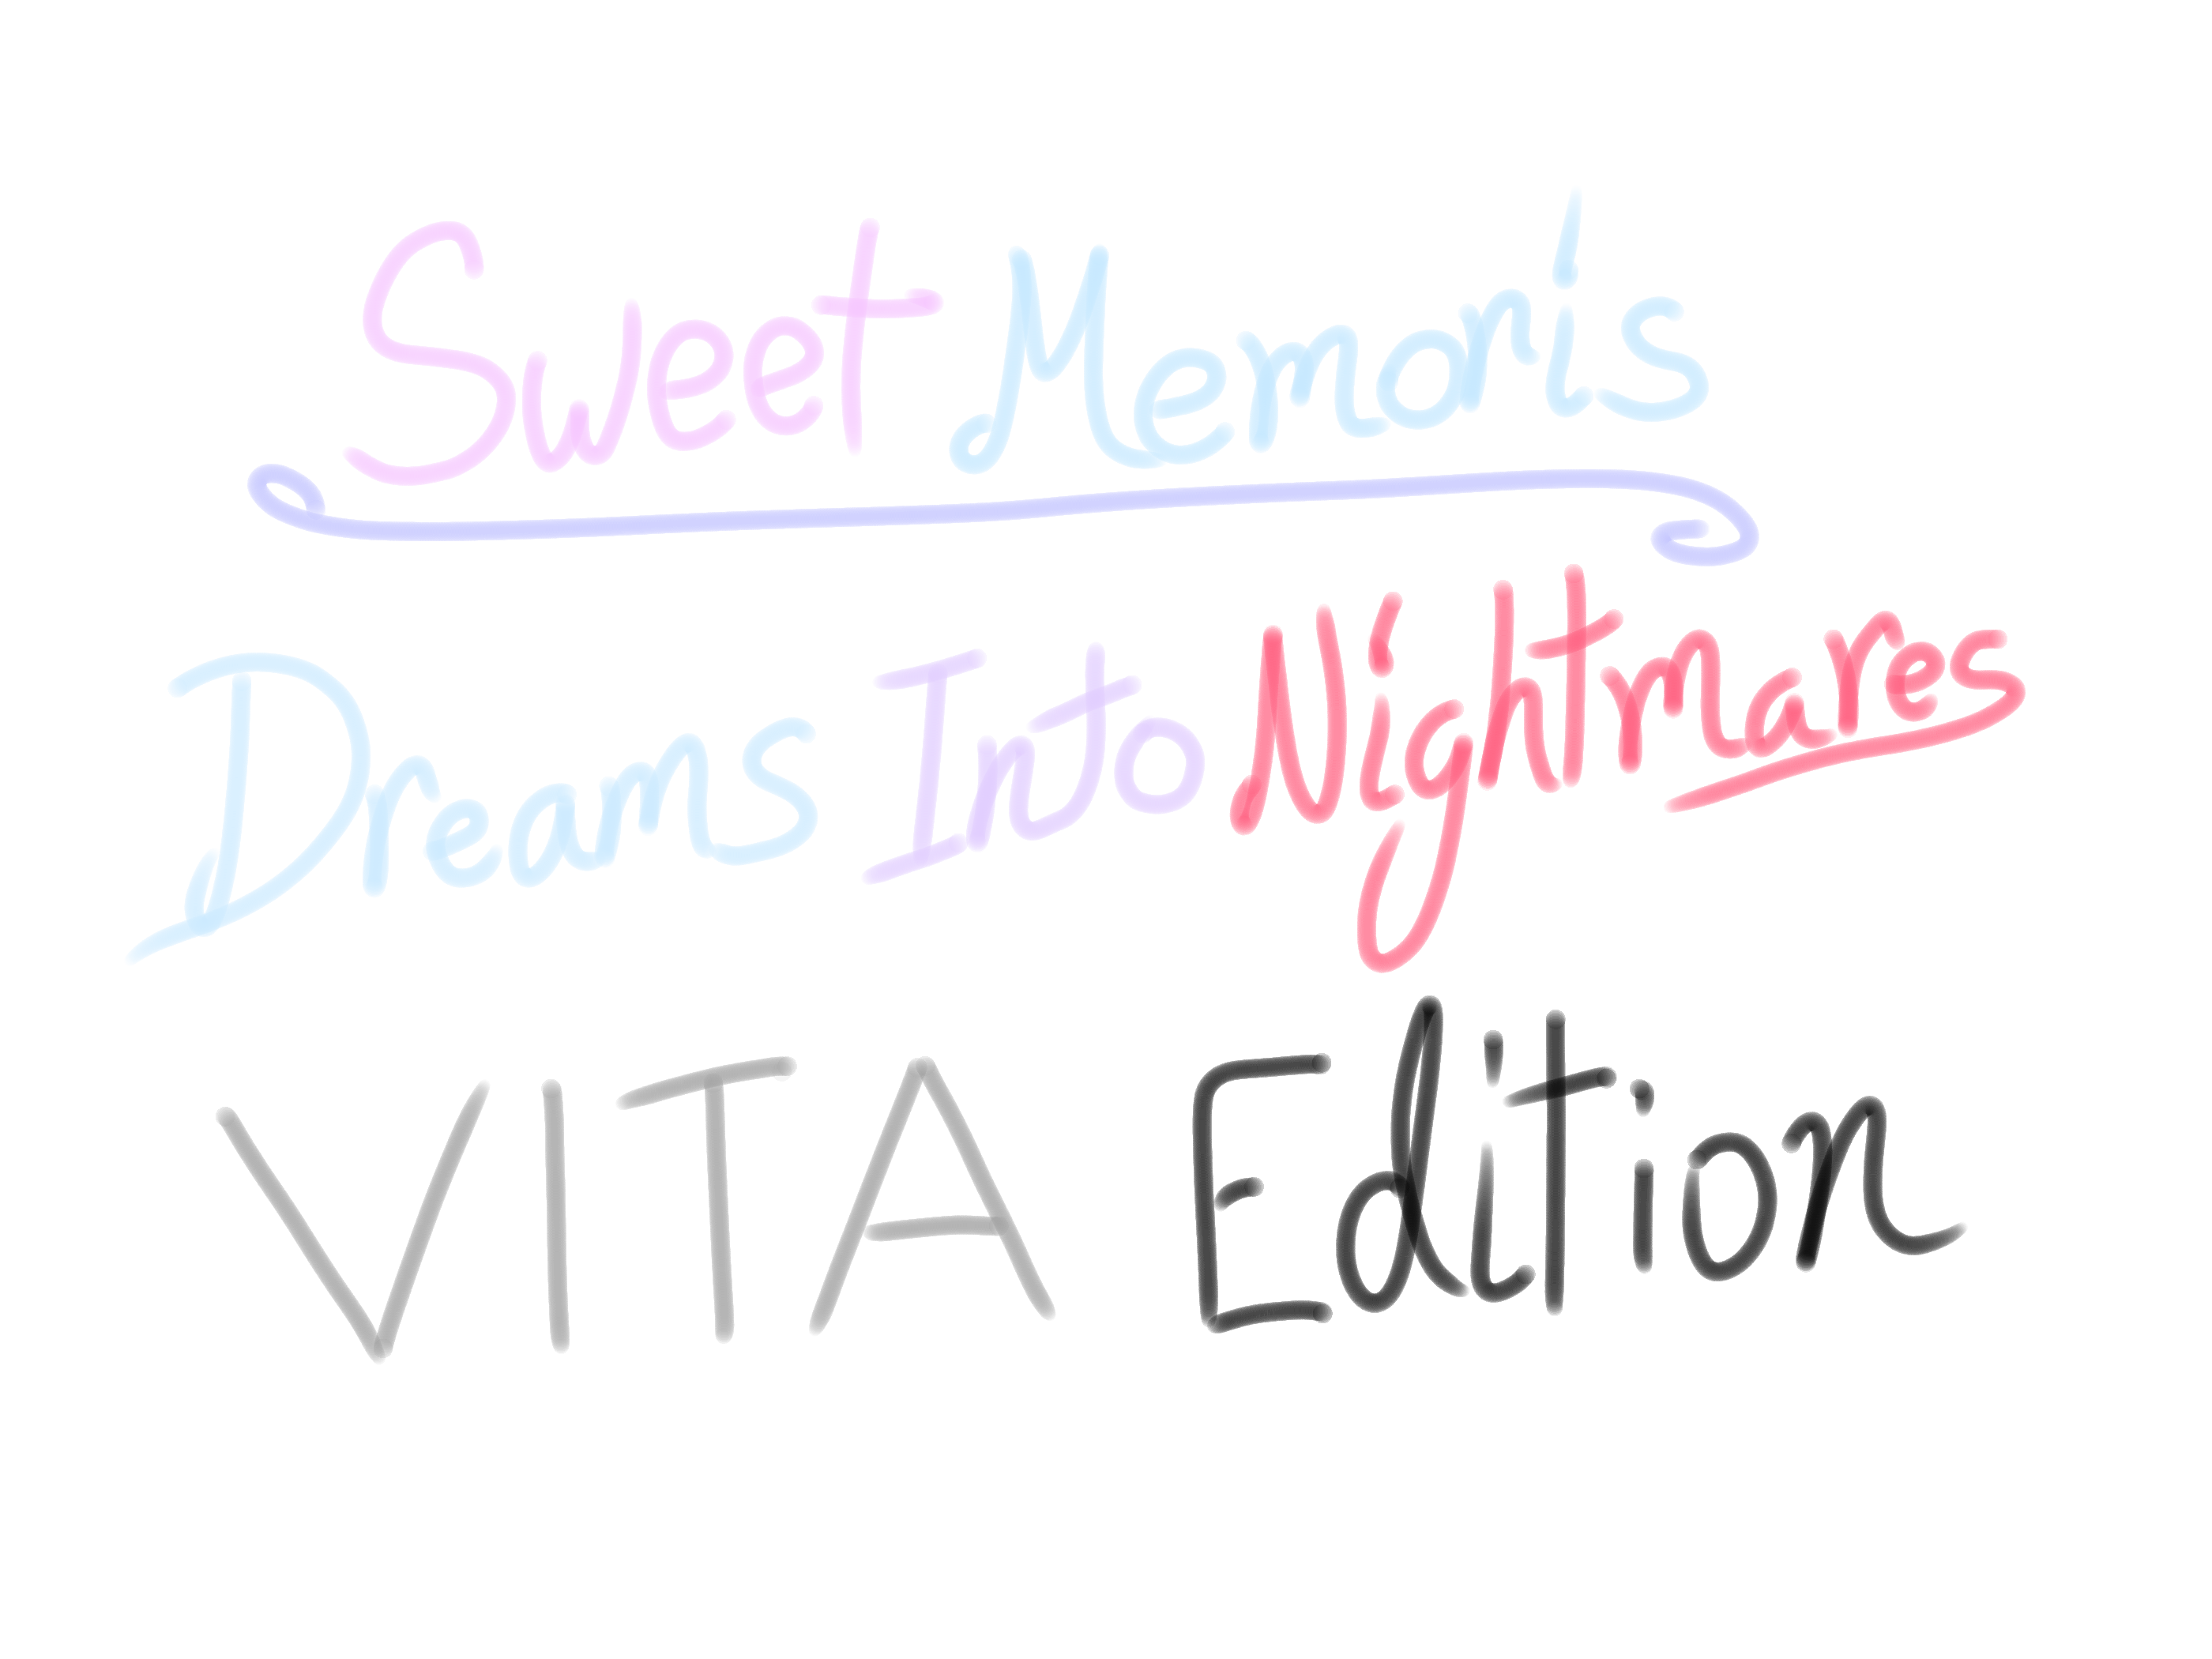 Sweet Memoris
Dreams Into Nightmares
VITA Edition